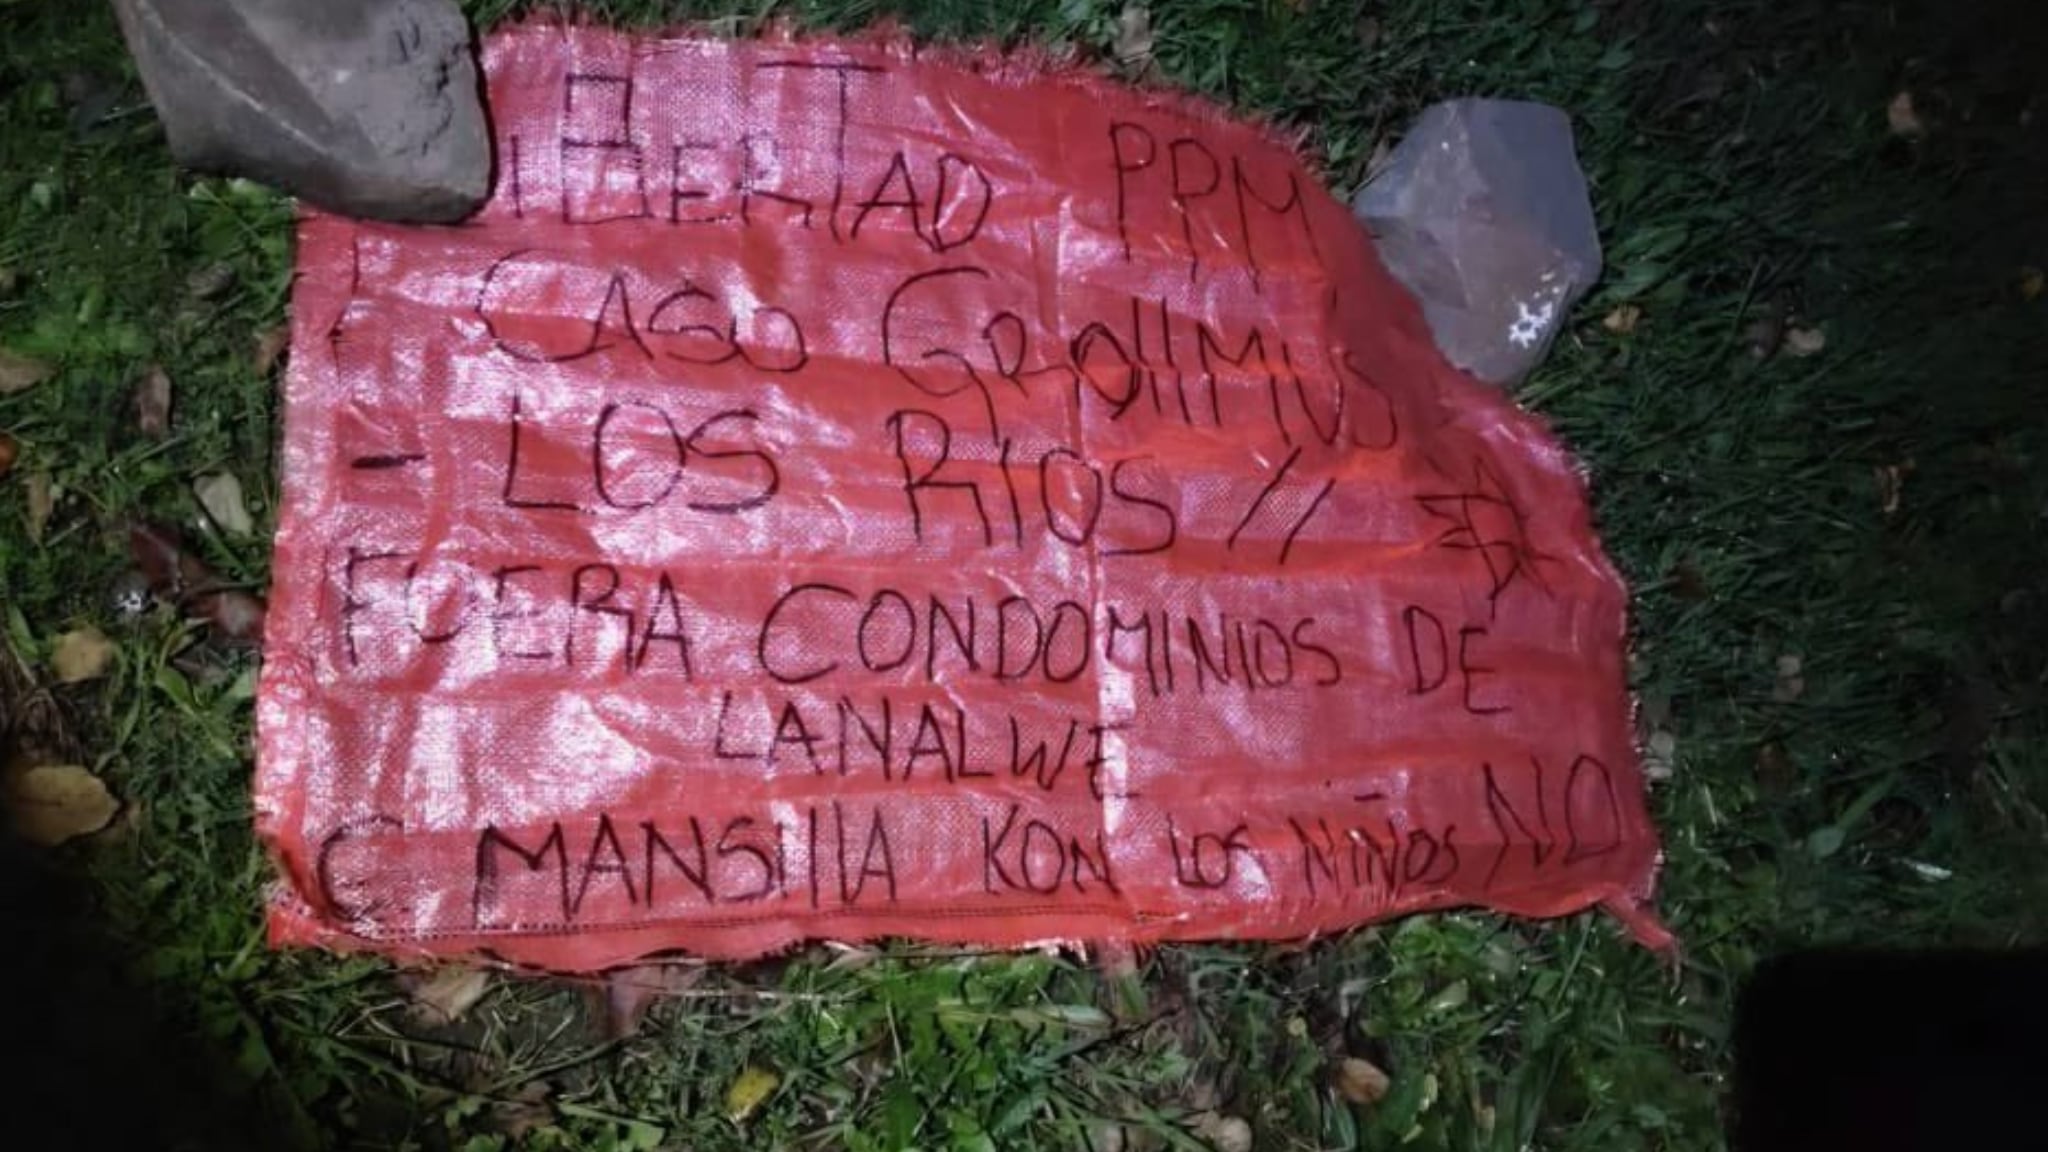 LIBERTAD PPM
CASO GROllMUS
- LOS RIOS //
FUERA CONDOMINIOS DE
LANALWE
C MANSIllA KON LOS NIÑOS NO